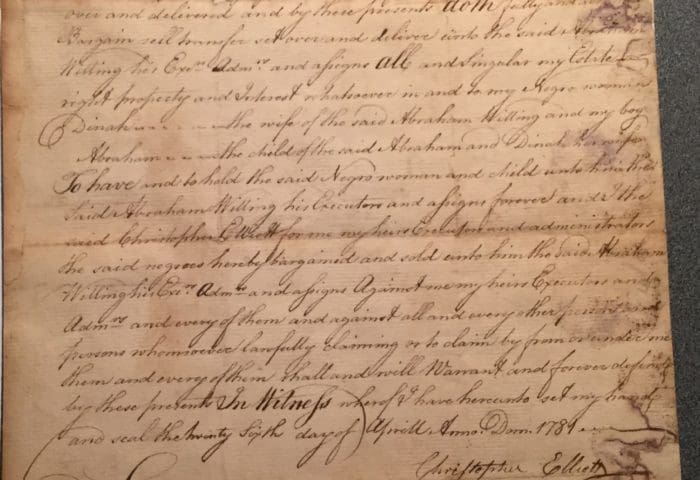 over and delivered and by these presents doth fully and
Bargain sell transfer set over and deliver unto the said Abraham
Willing his Exrs Admrs and assigns all and Singular my Estate
right property and Interest whatsoever in and to my Negro woman
Dinah the wife of the said Abraham Willing and my boy
Abraham the child of the said Abraham and Dinah his wife
To have and to hold the said Negro woman and child unto him the
Said Abraham Willing his Executors and assigns forever and I the
said Christopher Elliott for me my heirs Executors and administrators
the said negroes hereby bargained and sold unto him the said Abraham
Willing his Exrs Admrs and assigns Against me my heirs Executors and
Admrs and every of them and against all and every other person and
persons whomsoever lawfully claiming or to claim by from or under me
them and every of them shall and will Warrant and forever defend
by these presents In Witness whereof I have hereunto set my hand
and seal the twenty Sixth day of Aprill Anno. Dom. 1781
Christopher Elliott